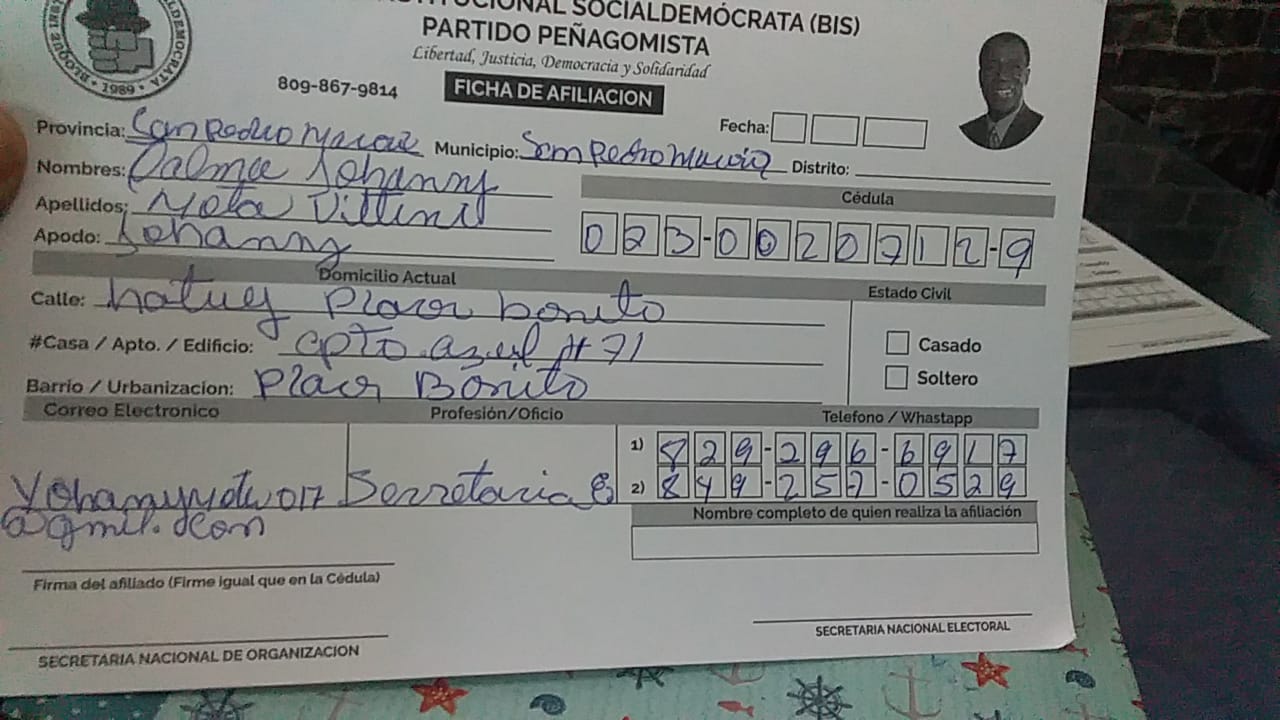 SOCIALDEMÓCRATA (BIS)
PARTIDO PEÑAGOMISTA
Libertad, Justicia, Democracia y Solidaridad
1989
809-867-9814
FICHA DE AFILIACION
Fecha:
Provincia: San Pedro Macori Municipio: San Pedro Macori Distrito:
Nombres: Dalma Johanny
Cédula
Apellidos: Mota Villini
Apodo: Johanny 023-0020712-9
Domicilio Actual Estado Civil
Calle: hatuey Placer bonito
#Casa / Apto. / Edificio: apto. azul # 71 Casado
Barrio / Urbanizacion: Placer Bonito Soltero
Correo Electronico Profesión/Oficio Telefono / Whastapp
1) 829-296-6917
Secretaria 2) 849-257-0529
@gmil.com
Nombre completo de quien realiza la afiliación
Firma del afiliado (Firme igual que en la Cédula)
SECRETARIA NACIONAL ELECTORAL
SECRETARIA NACIONAL DE ORGANIZACION